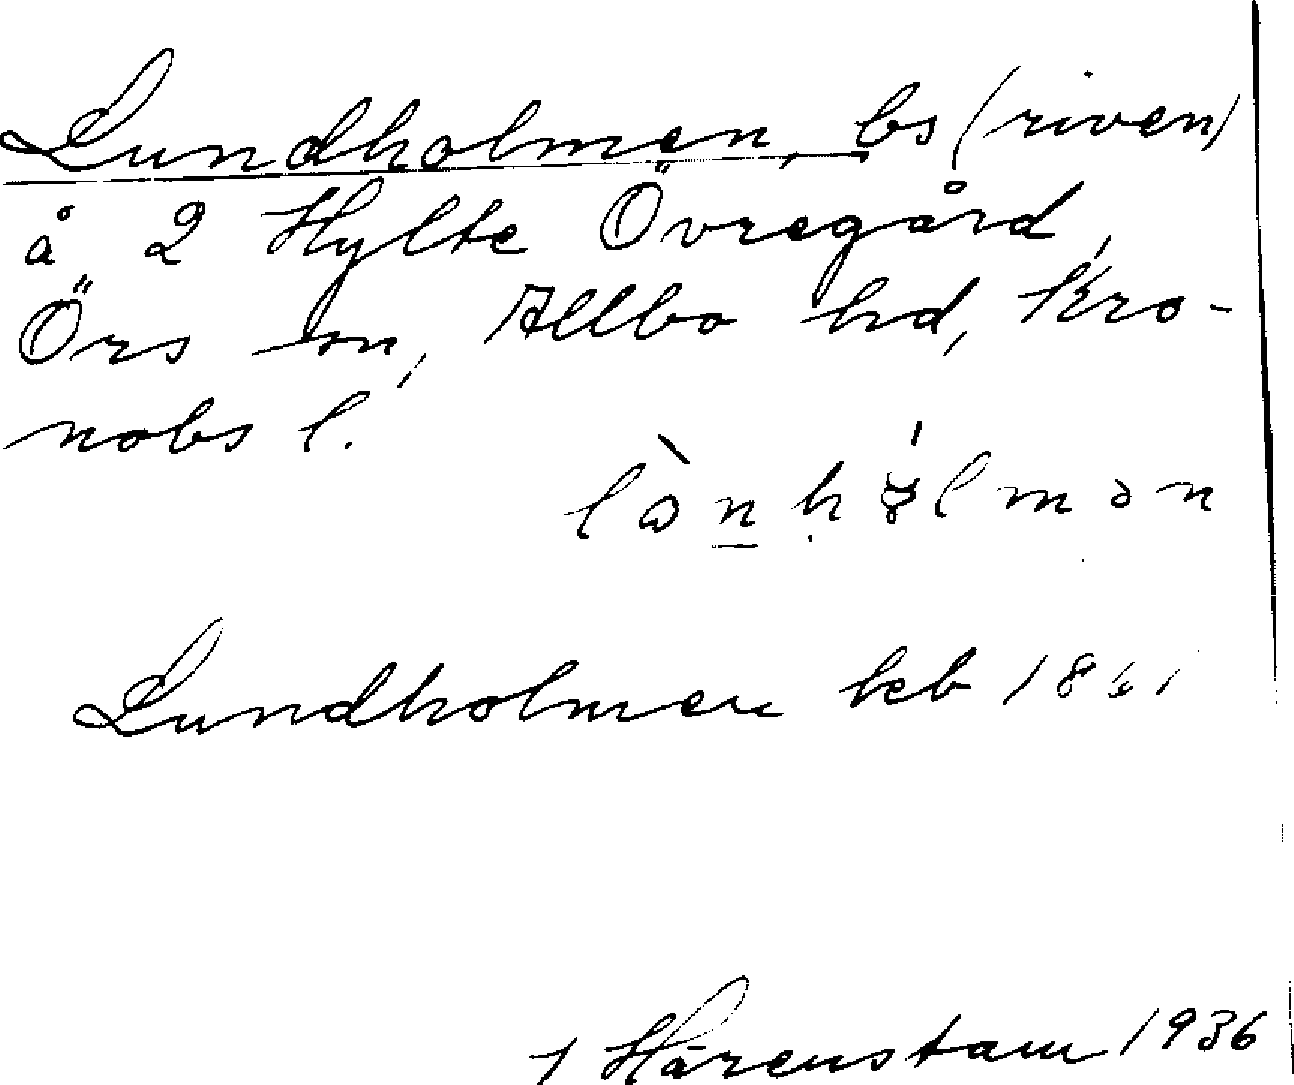 Lundholmen, bs (riven)
å 2 Hylte Övregård,
Örs sn, Allbo hd, Kro-
nobs l.
Lundholmen keb 1861
J Härenstam 1936